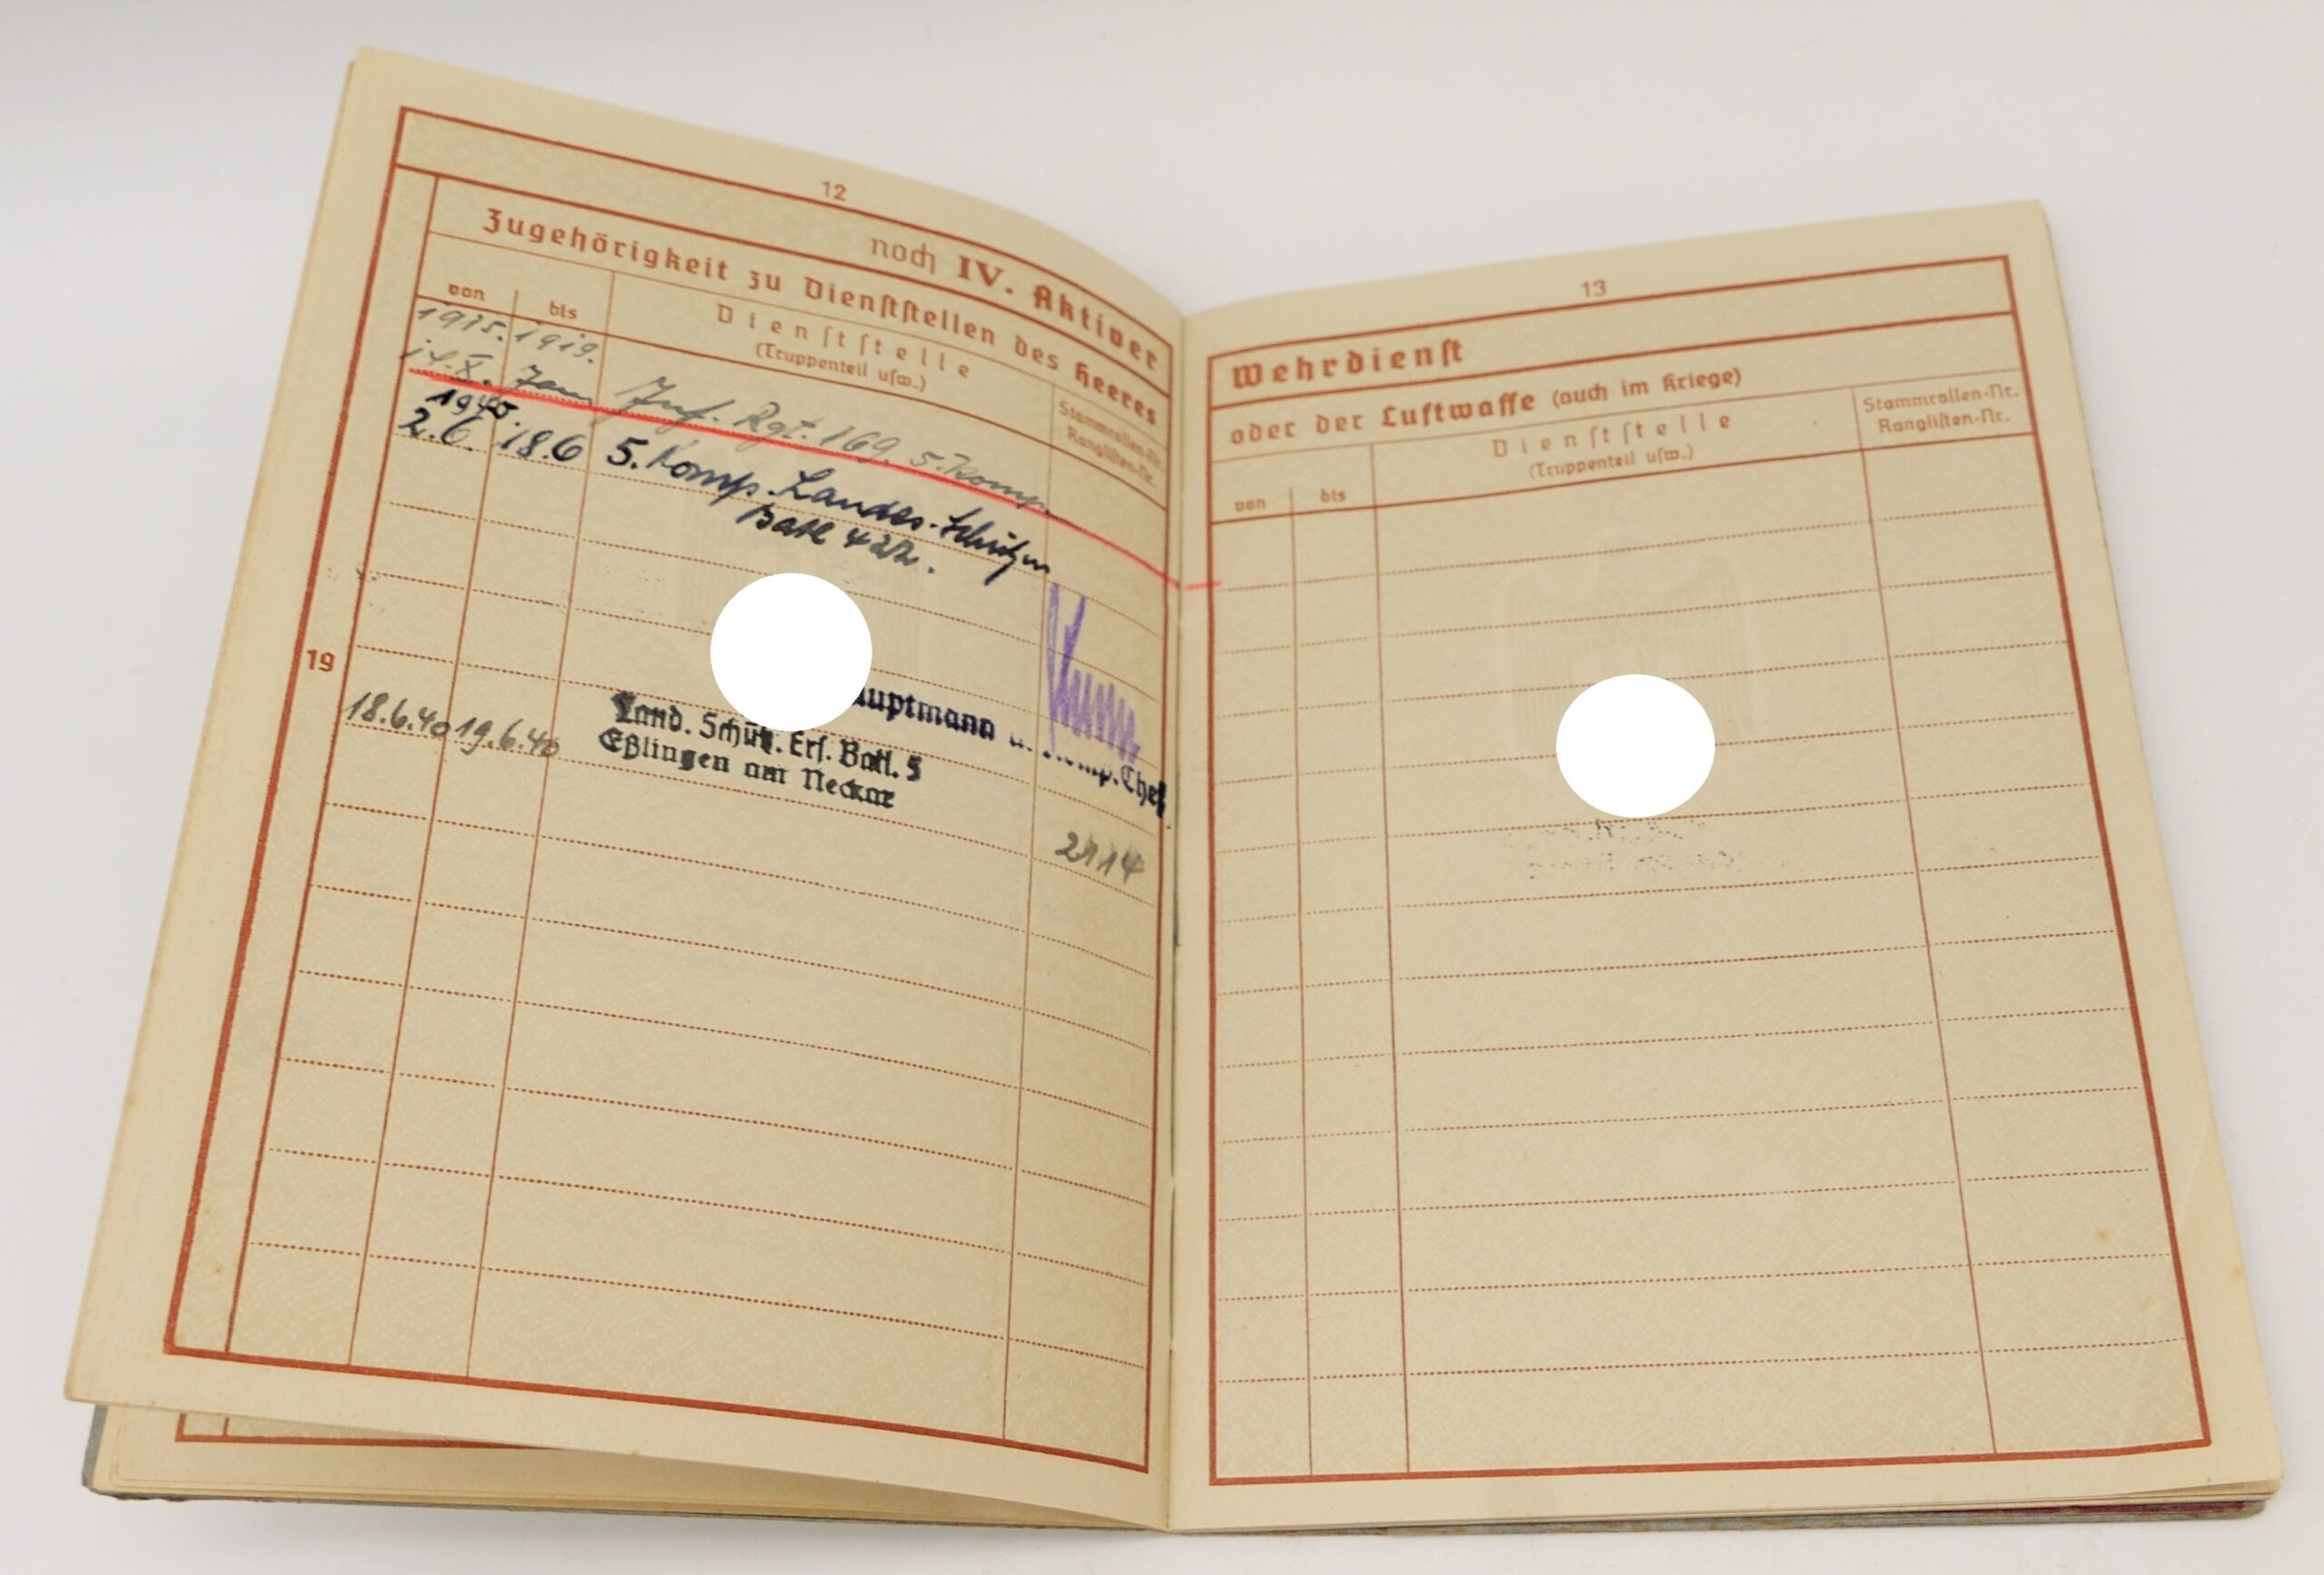 12
noch IV. Aktiver
Zugehörigkeit zu Dienststellen des Heeres
von
bis
Dienststelle
(Truppenteil usw.)
Stammrollen-Nr.
Ranglisten-Nr.
1915. 1919.
Inf. Rgt. 169. 5. Komp.
1940.
2.6. 18.6 5. Komp. Landes-Schützen
Batl 422.
19
Hauptmann u. Komp.Chef
18.6.40 19.6.40
Land. Schütz. Ers. Batl. 5
Eßlingen am Neckar
2114
13
Wehrdienst
oder der Luftwaffe (auch im Kriege)
von
bis
Dienststelle
(Truppenteil usw.)
Stammrollen-Nr.
Ranglisten-Nr.